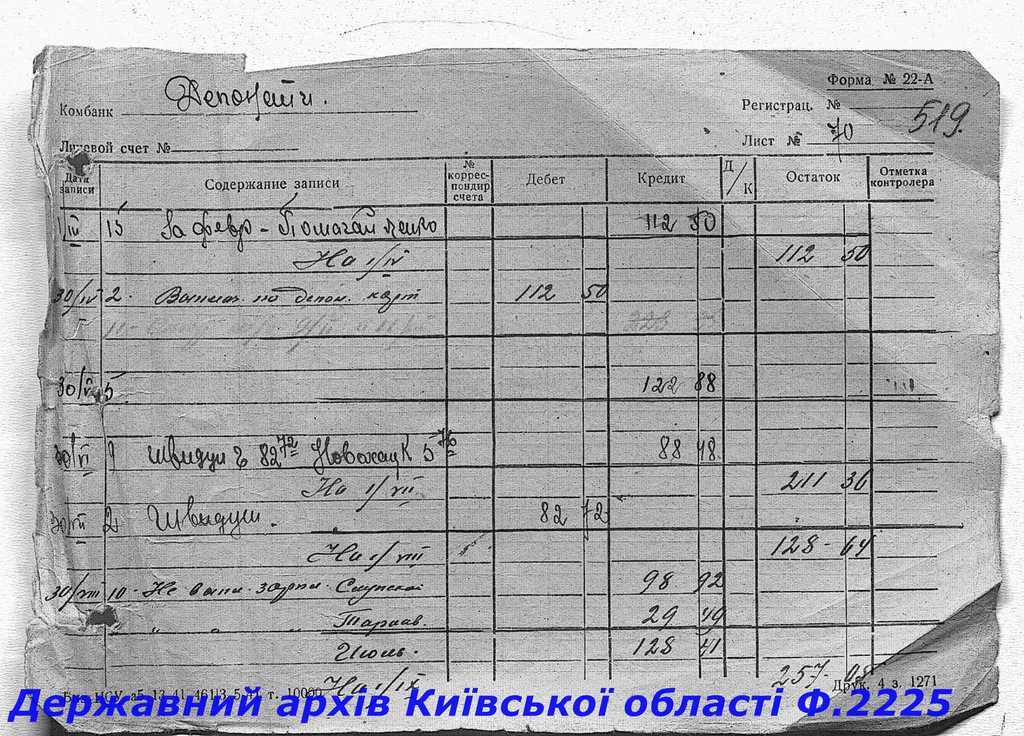 Форма № 22-А
Депоненти.
Комбанк
Регистрац. №
519.
Лицевой счет №
Лист № 70
Дата записи
Содержание записи
№ корреспондир счета
Дебет
Кредит
Д/К
Остаток
Отметка контролера
1/III 15 За февр - Помагайленко 112 50
На 1/IV 112 50
30/IV 2. по депон. карт 112 50
30/V 5 122 88
30/VI 9 Швидун 82 72 5 76 88 48
На 1/VII 211 36
30/VII 2 Швыдун. 82 72
На 1/VIII 128-64
30/VIII 10 - Не выпл. зарпл. 98 92
29 49
Июль. 128 41
На 1/IX 257-05
т. 10000
Друк. 4 з. 1271
Державний архів Київської області Ф.2225